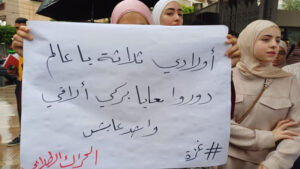 أورلادي ثلاثة يا عالم
دوروا معايا بركي ألاقي
واحد عايش
#غزة
الحراك الطلابي